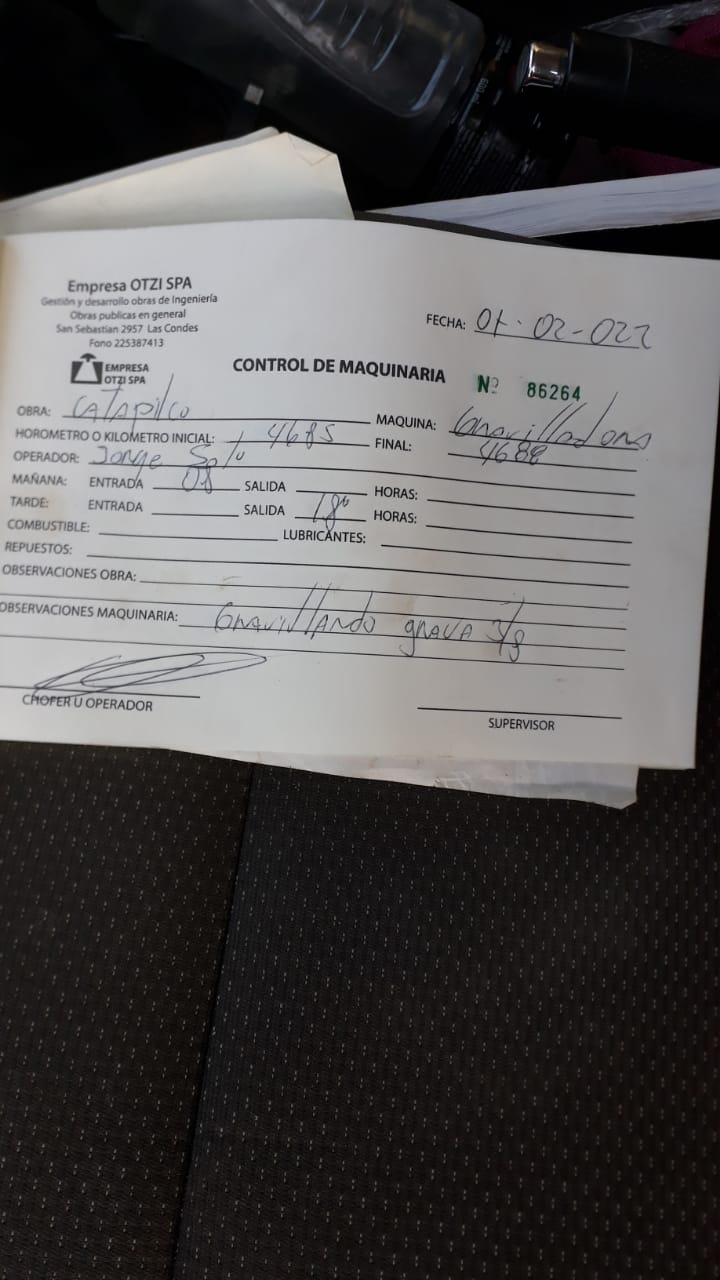 Empresa OTZI SPA
Gestión y desarrollo obras de Ingeniería
Obras publicas en general
San Sebastian 2957 Las Condes
Fono 225387413
EMPRESA
OTZI SPA
FECHA: 01-02-022
CONTROL DE MAQUINARIA
Nº 86264
OBRA: CATAPilco MAQUINA: Gravilladora
HOROMETRO O KILOMETRO INICIAL: 4685 FINAL: 4688
OPERADOR: Jorge
MAÑANA: ENTRADA 08 SALIDA HORAS:
TARDE: ENTRADA SALIDA 18 HORAS:
COMBUSTIBLE: LUBRICANTES:
REPUESTOS:
OBSERVACIONES OBRA:
OBSERVACIONES MAQUINARIA: Gravillando grava 3/8
CHOFER U OPERADOR
SUPERVISOR